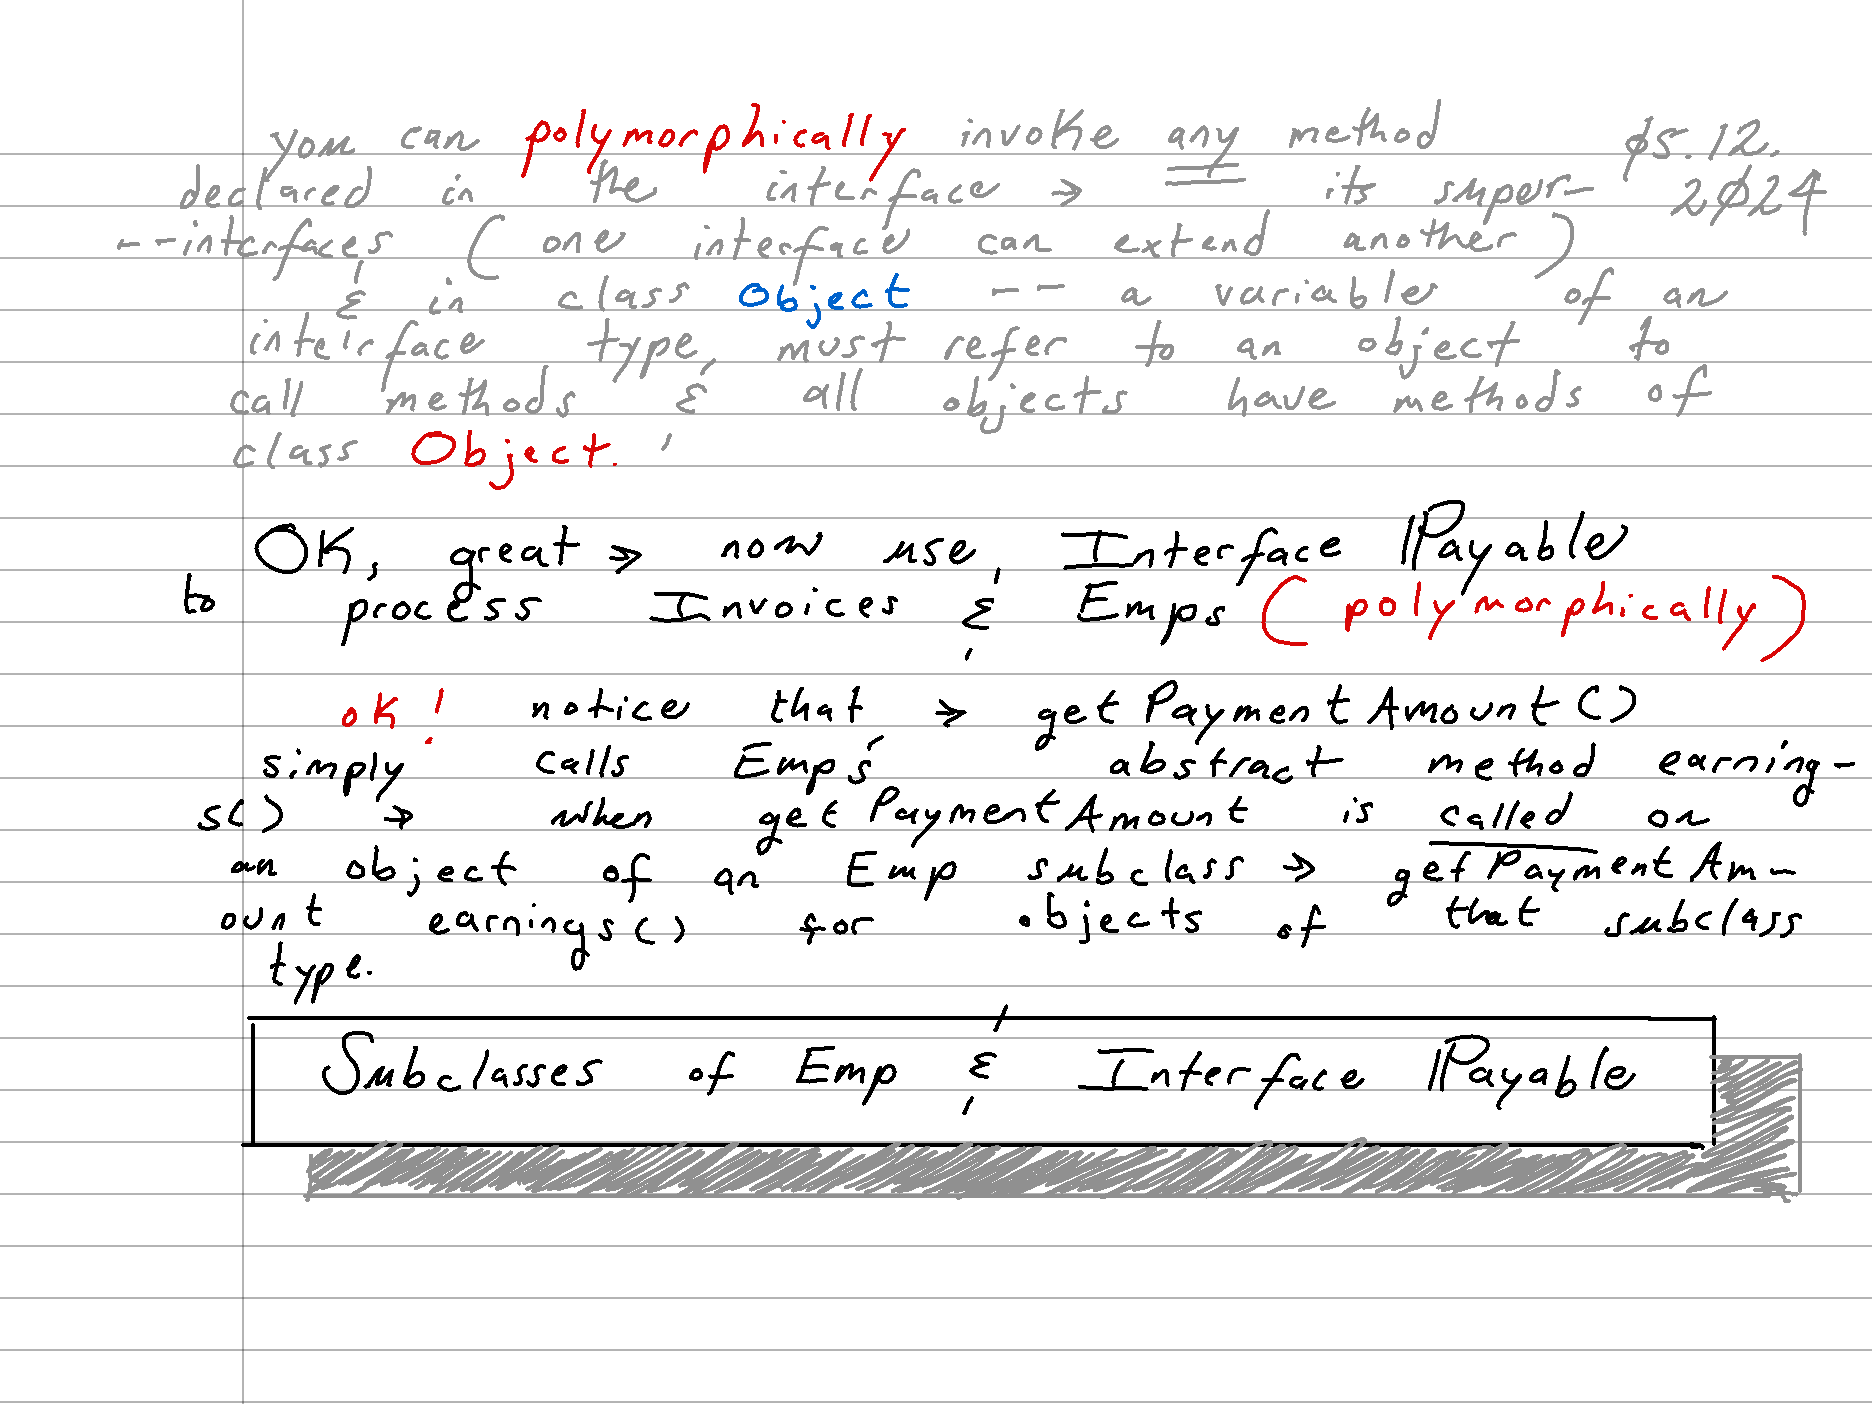 you can polymorphically invoke any method
declared in the interface → its super-
--interfaces (one interface can extend another)
& in class Object -- a variable of an
interface type, must refer to an object to
call methods & all objects have methods of
class Object.
ø5.12.
2ø24
OK, great → now use, Interface Payable
to process Invoices & Emps (polymorphically)
oK! notice that → getPaymentAmount()
simply calls Emp's abstract method earning-
s() → when getPaymentAmount is called on
an object of an Emp subclass → getPaymentAm-
ount earnings() for objects of that subclass
type.
Subclasses of Emp & Interface Payable